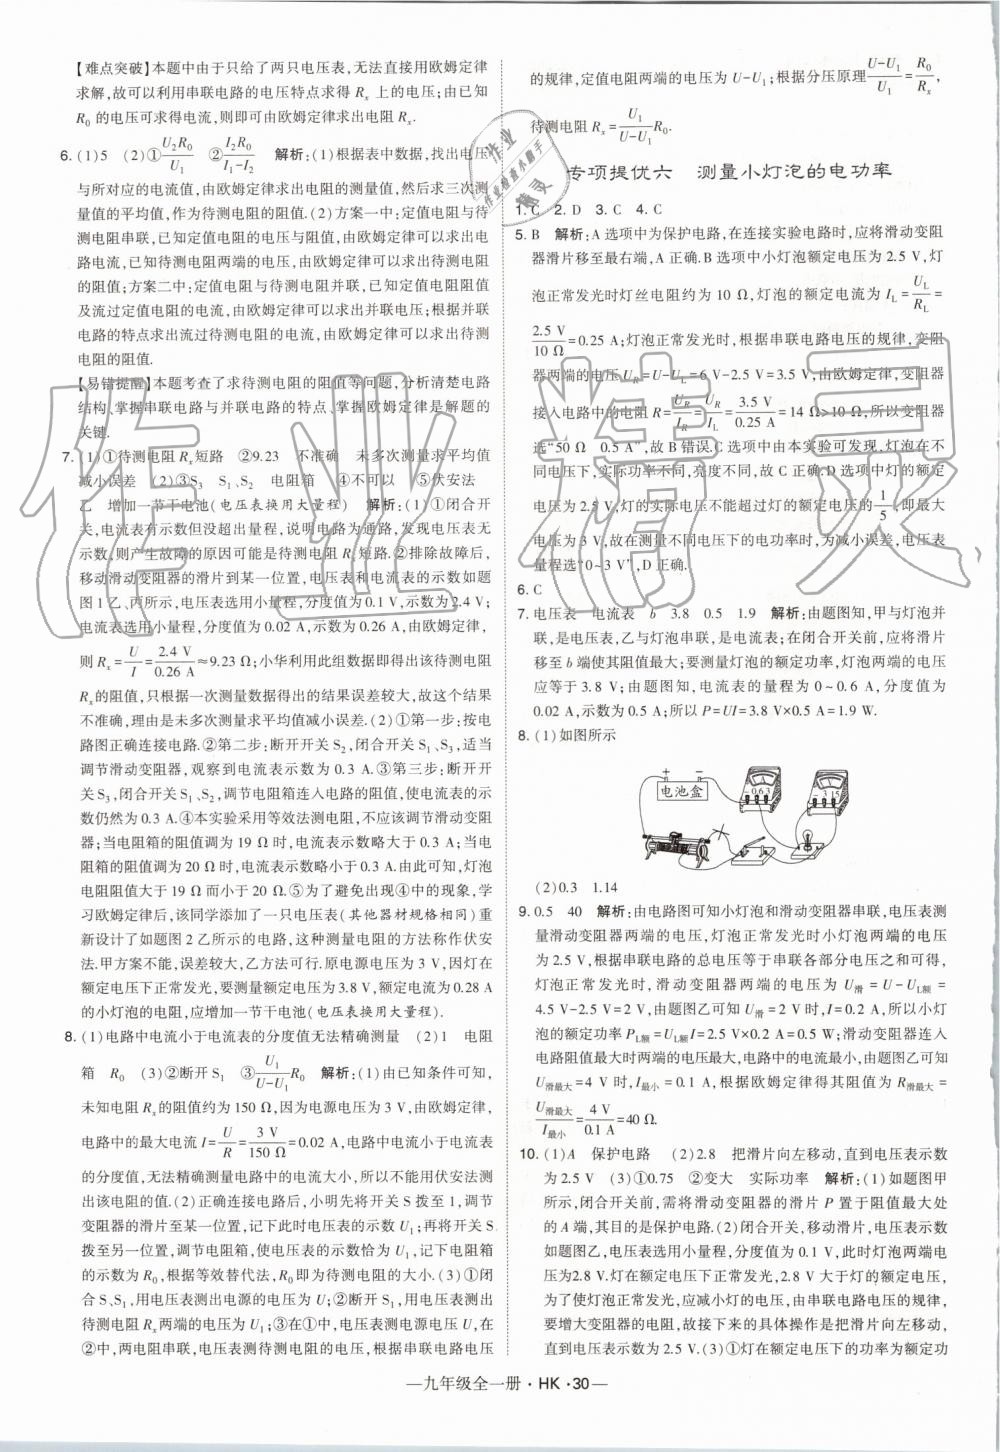 【难点突破】本题中由于只给了两只电压表,无法直接用欧姆定律
求解,故可以利用串联电路的电压特点求得 Rx 上的电压;由已知
R0 的电压可求得电流,则即可由欧姆定律求出电阻 Rx.
6. (1)5 (2)①U2R0/U1 ②I2R0/(I1-I2) 解析:(1)根据表中数据,找出电压
与所对应的电流值,由欧姆定律求出电阻的测量值,然后求三次测
量值的平均值,作为待测电阻的阻值.(2)方案一中;定值电阻与待
测电阻串联,已知定值电阻的电压与阻值,由欧姆定律可以求出电
路电流,已知待测电阻两端的电压,由欧姆定律可以求出待测电阻
的阻值;方案二中:定值电阻与待测电阻并联,已知定值电阻阻值
及流过定值电阻的电流,由欧姆定律可以求出并联电压;根据并联
电路的特点求出流过待测电阻的电流,由欧姆定律可以求出待测
电阻的阻值.
【易错提醒】本题考查了求待测电阻的阻值等问题,分析清楚电路
结构、掌握串联电路与并联电路的特点、掌握欧姆定律是解题的
关键.
7. (1)①待测电阻 Rx短路 ②9.23 不准确 未多次测量求平均值
减小误差 (2)③S3 S1、S2 电阻箱 ④不可以 ⑤伏安法
乙 增加一节干电池(电压表换用大量程) 解析:(1)①闭合开
关,电流表有示数但没超出量程,说明电路为通路,发现电压表无
示数,则产生故障的原因可能是待测电阻 Rx短路.②排除故障后,
移动滑动变阻器的滑片到某一位置,电压表和电流表的示数如题
图1乙、丙所示,电压表选用小量程,分度值为0.1 V,示数为2.4 V;
电流表选用小量程,分度值为 0.02 A,示数为 0.26 A,由欧姆定律,
则 Rx=U/I=2.4 V/0.26 A≈9.23 Ω;小华利用此组数据即得出该待测电阻
Rx的阻值,只根据一次测量数据得出的结果误差较大,故这个结果
不准确,理由是未多次测量求平均值减小误差.(2)①第一步:按电
路图正确连接电路.②第二步:断开开关 S2,闭合开关 S1、S3,适当
调节滑动变阻器,观察到电流表示数为 0.3 A.③第三步:断开开关
S3,闭合开关 S1、S2,调节电阻箱连入电路的阻值,使电流表的示
数仍然为0.3 A.④本实验采用等效法测电阻,不应该调节滑动变阻
器;当电阻箱的阻值调为 19 Ω 时,电流表示数略大于 0.3 A;当电
阻箱的阻值调为 20 Ω 时,电流表示数略小于 0.3 A.由此可知,灯泡
电阻阻值大于 19 Ω 而小于 20 Ω.⑤为了避免出现④中的现象,学
习欧姆定律后,该同学增加了一只电压表(其他器材规格相同)重
新设计了如题图 2 乙所示的电路,这种测量电阻的方法称作伏安
法.甲方案不能,误差较大,乙方法可行.原电源电压为 3 V,因灯在
额定电压下正常发光,要测量额定电压为 3.8 V,额定电流为 0.28 A
的小灯泡的电阻,应增加一节干电池(电压表换用大量程).
8. (1)电路中电流小于电流表的分度值无法精确测量 (2)1 电阻
箱 R0 (3)②断开 S1 ③U1/(U-U1)R0 解析:(1)由已知条件可知,
未知电阻 Rx的阻值约为 150 Ω,因为电源电压为 3 V,由欧姆定律,
电路中的最大电流 I=U/R=3 V/150 Ω=0.02 A,电路中电流小于电流表
的分度值,无法精确测量电路中的电流大小,因而无法较准确地测
出该电阻的值.(2)正确连接电路后,小明先将开关 S 拨至 1,调节
变阻器的滑片至某一位置,记下此时电压表的示数 U1;再将开关 S
拨至另一位置,调节电阻箱,使电压表的示数恰为 U1,记下电阻箱
的示数 R0,根据等效替代法,R0即为待测电阻的大小.(3)①闭
合 S、S1,用电压表测出电源的电压为 U;②断开 S1,用电压表测出
待测电阻的电压为 U1;③在①中,电压表测量电源电压 U,在
②中,两电阻串联,电压表测待测电阻的电压,根据串联电路电压
的规律,定值电阻两端的电压为 U-U1;根据分压原理(U-U1)/U1=R0/Rx,
待测电阻 Rx=U1/(U-U1)R0.
专项提优六 测量小灯泡的电功率
1. C 2. D 3. C 4. C
5. B 解析:A 选项中为保护电路,在连接实验电路时,应将滑动变阻
器滑片移至最右端,A 正确.B 选项中小灯泡额定电压为 2.5 V,灯
泡正常发光时灯丝电阻约为 10 Ω,灯泡的额定电流为 IL=UL/RL=
2.5 V/10 Ω=0.25 A;灯泡正常发光时,根据串联电路电压的规律,变阻
器两端的电压UR=U-UL=6 V-2.5 V=3.5 V,由欧姆定律,变阻器
接入电路中的电阻 R=UR/IR=UR/IL=3.5 V/0.25 A=14 Ω>10 Ω,所以变阻器
选“50 Ω 0.5 A”,故 B 错误.C 选项中由本实验可发现,灯泡在不
同电压下,实际功率不同,亮度不同,故 C 正确.D 选项中灯的额定
电压为 2.5 V,灯的实际电压不能超过灯的额定电压的1/5,即最大
电压为 3 V,故在测量不同电压下的电功率时,为减小误差,电压表
量程选“0~3 V”,D 正确.
6. C
7. 电压表 电流表 b 3.8 0.5 1.9 解析:由题图知,甲与灯泡并
联,是电压表,乙与灯泡串联,是电流表;在闭合开关前,应将滑片
移至 b 端使其阻值最大;要测量灯泡的额定功率,灯泡两端的电压
应等于 3.8 V;由题图知,电流表的量程为 0~0.6 A,分度值为
0.02 A,示数为 0.5 A;所以 P=UI=3.8 V×0.5 A=1.9 W.
8. (1)如图所示
电池盒
(2)0.3 1.14
9. 0.5 40 解析:由电路图可知小灯泡和滑动变阻器串联,电压表测
量滑动变阻器两端的电压,灯泡正常发光时小灯泡两端的电压
为 2.5 V,根据串联电路的总电压等于各部分电压之和可得,
灯泡正常发光时,滑动变阻器两端的电压为 U滑=U-UL额=
4.5 V-2.5 V=2 V,由题图乙可知当 U=2 V 时,I=0.2 A,所以小灯
泡的额定功率 PL额=UL额I=2.5 V×0.2 A=0.5 W;滑动变阻器连入
电路阻值最大时两端的电压最大,电路中的电流最小,由题图乙可知
U滑最大=4 V 时,I最小=0.1 A,根据欧姆定律得其阻值为 R滑最大=
U滑最大/I最小=4 V/0.1 A=40 Ω.
10. (1)A 保护电路 (2)2.8 把滑片向左移动,直到电压表示数
为 2.5 V (3)①0.75 ②变大 实际功率 解析:(1)如题图甲
所示,闭合开关前,需将滑动变阻器的滑片 P 置于阻值最大处
的 A 端,其目的是保护电路.(2)闭合开关,移动滑片,电压表示数
如题图乙,电压表选用小量程,分度值为 0.1 V,此时灯泡两端电
压为2.8 V.灯在额定电压下正常发光,2.8 V 大于灯的额定电压,
为了使灯泡正常发光,应减小灯的电压,由串联电路电压的规律,
要增大变阻器的电压,故接下来的具体操作是把滑片向左移动,
直到电压表示数为 2.5 V.(3)①灯在额定电压下的功率为额定功
九年级全一册·HK·30